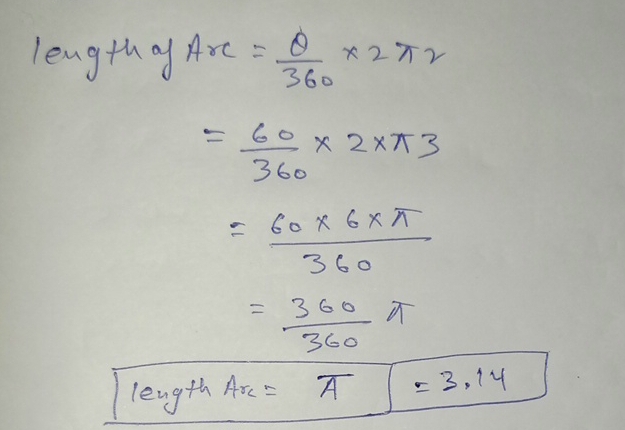 length of Arc = θ/360 × 2πr
= 60/360 × 2×π3
= 60 × 6 × π/360
= 360/360 π
length Arc = π = 3.14